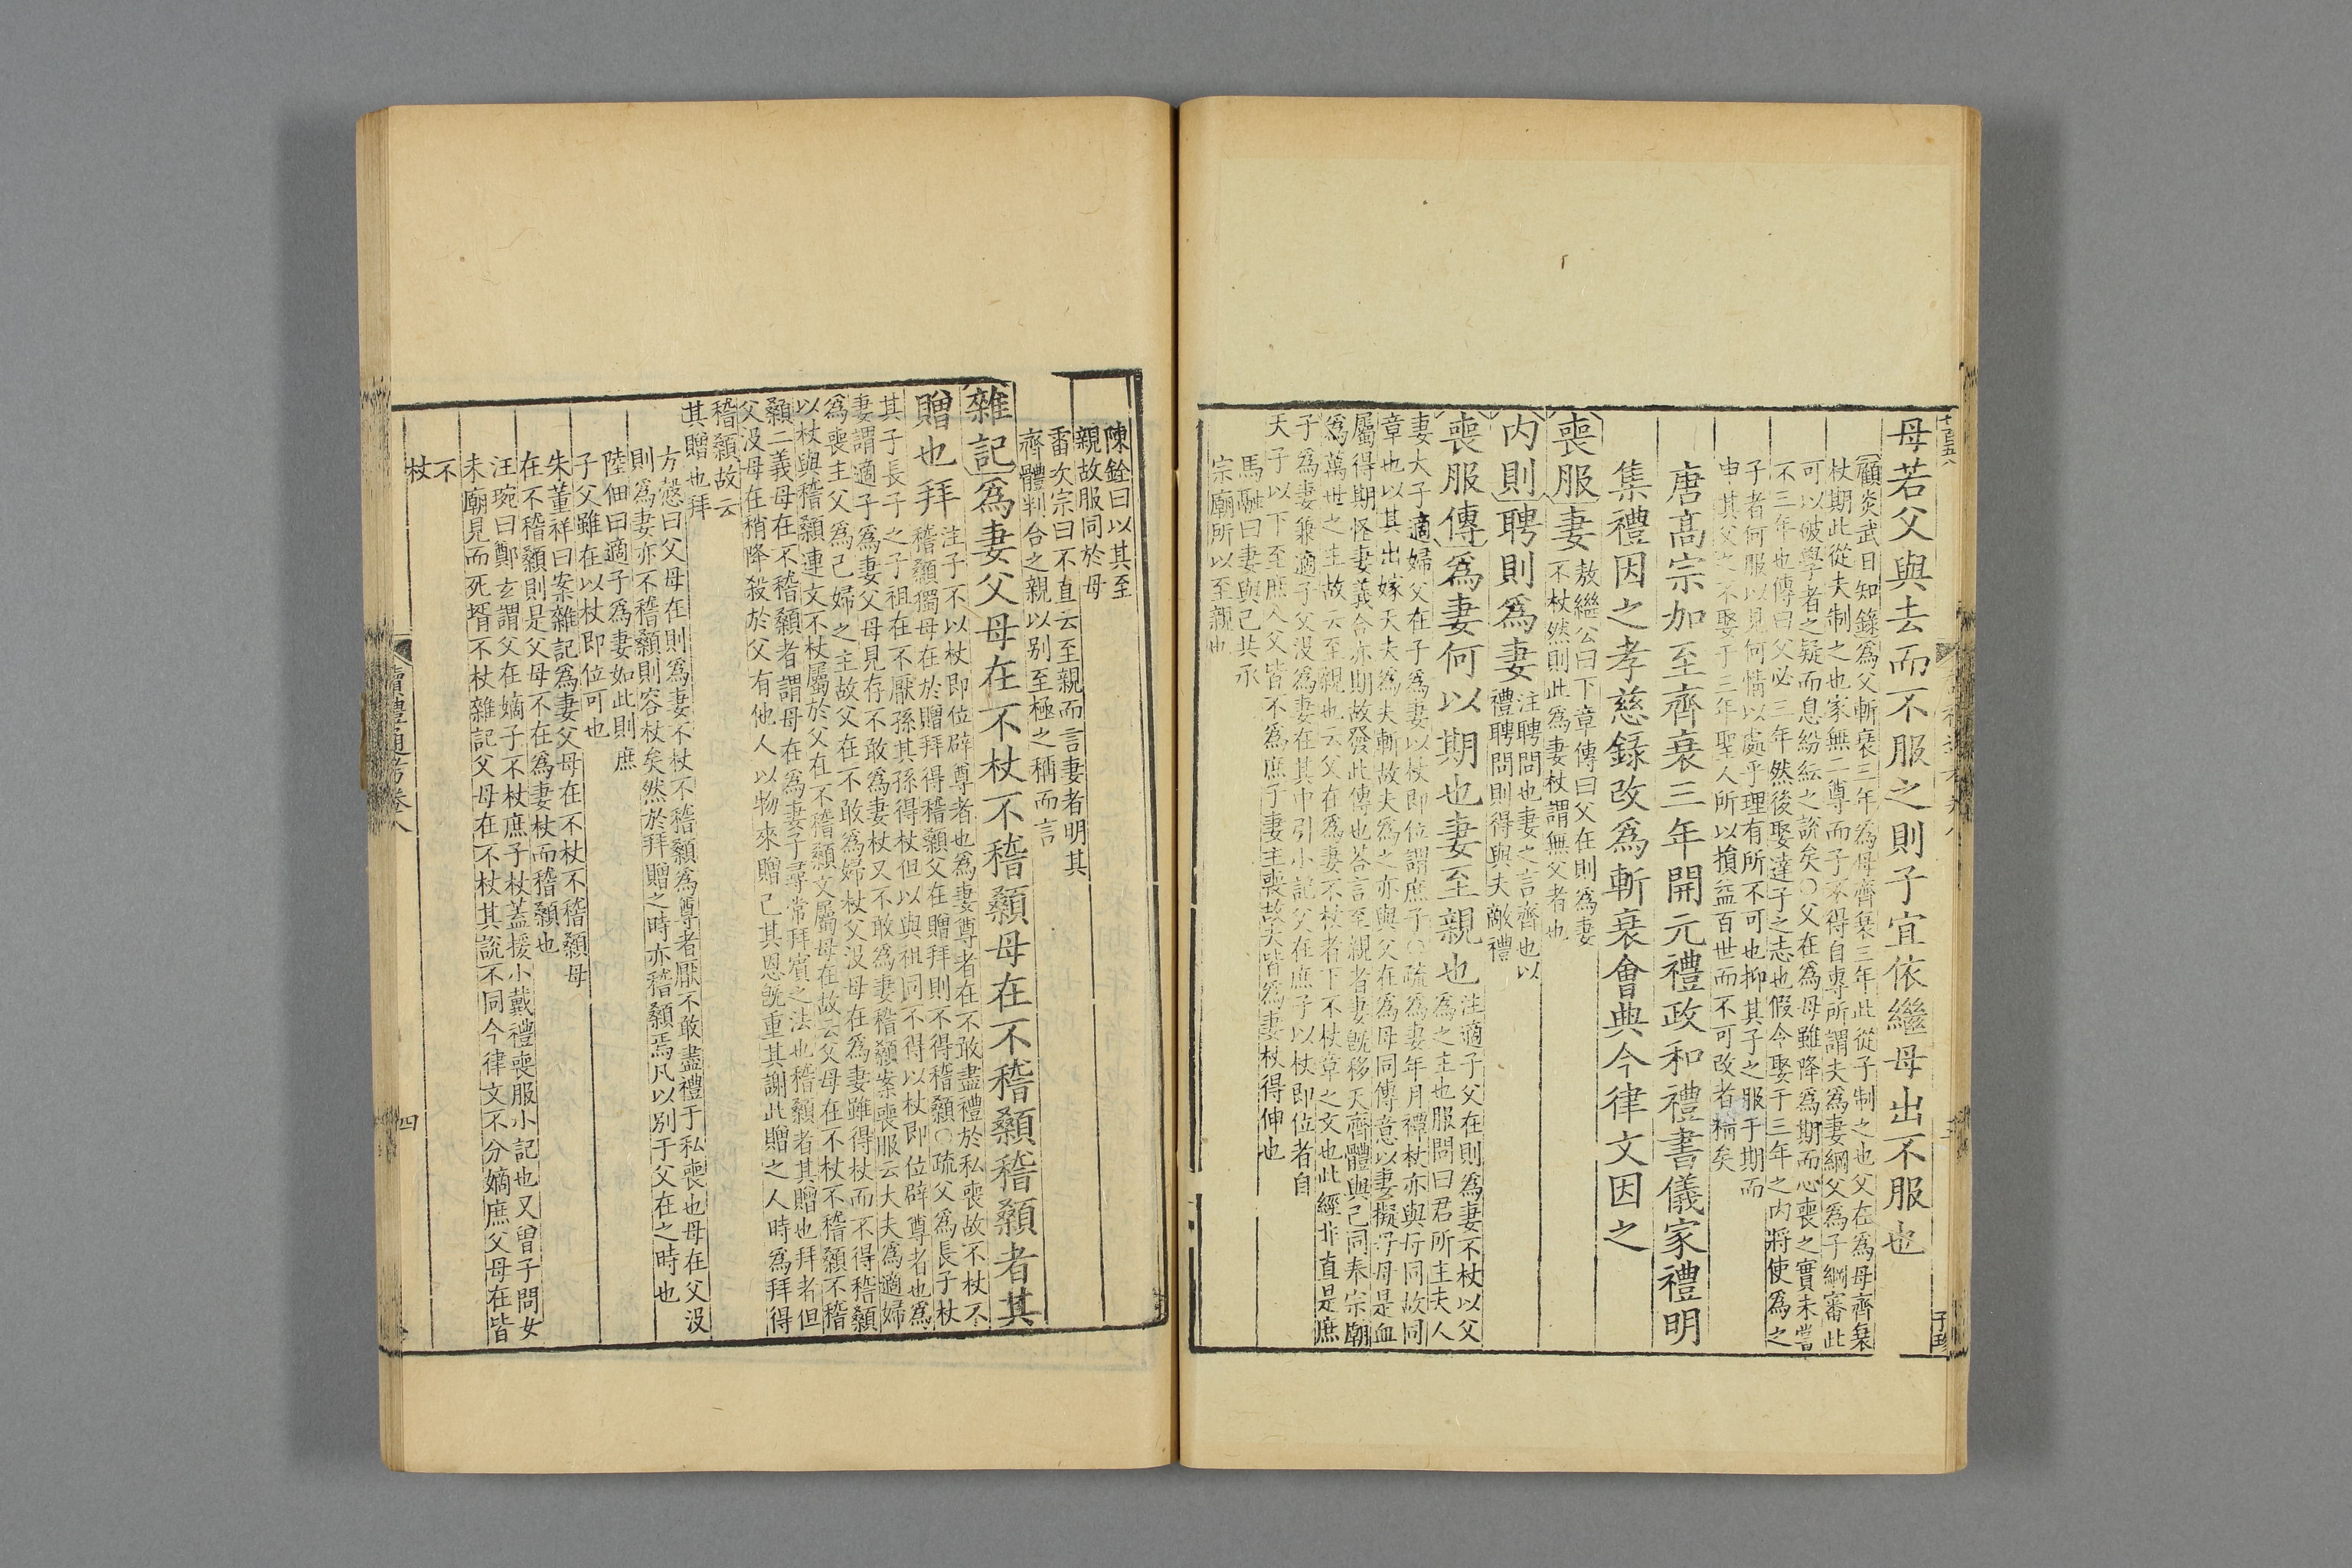 母若父與去而不服之則子宜依繼母出不服也
顧炎武日知錄爲父斬衰三年爲母齊衰三年此從子制之也父在爲母齊衰
杖期此從夫制之也家無二尊而子不得自專所謂夫爲妻綱父爲子綱審此
可以破學者之疑而息紛紜之說矣○父在爲母雖降爲期而心喪之實未嘗
不三年也傳曰父必三年然後娶達子之志也假令娶于三年之內將使爲之
子者何服以見何情以處乎理有所不可也抑其子之服于期而
申其父之不娶于三年聖人所以損益百世而不可改者精矣
唐高宗加至齊衰三年開元禮政和禮書儀家禮明
集禮因之孝慈錄改爲斬衰會典今律文因之
喪服妻
敖繼公曰下章傳曰父在則爲妻
不杖然則此爲妻杖謂無父者也
內則聘則爲妻
注聘問也妻之言齊也以
禮聘問則得與夫敵禮
喪服傳爲妻何以期也妻至親也
注適子父在則爲妻不杖以父
爲之主也服問曰君所主夫人
妻大子適婦父在子爲妻以杖即位謂庶子○疏爲妻年月禫杖亦與母同故同
章也以其出嫁天夫爲夫斬故夫爲之亦與父在爲母同傳意以妻擬母母是血
屬得期怪妻義合亦期故發此傳也荅言至親者妻旣移天齊體與己同奉宗廟
爲萬世之主故云至親也云父在爲妻不杖者下不杖章之文也此經非直是庶
子爲妻兼適子父没爲妻在其中引小記父在庶子以杖即位者自
天子以下至庶人父皆不爲庶子妻主喪故夫皆爲妻杖得伸也
馬融曰妻與己共承
宗廟所以至親也
陳銓曰以其至
親故服同於母
雷次宗曰不直云至親而言妻者明其
齊體判合之親以別至極之稱而言
雜記爲妻父母在不杖不稽顙母在不稽顙稽顙者其
贈也拜
注子不以杖即位辟尊者也爲妻尊者在不敢盡禮於私喪故不杖不
稽顙獨母在於贈拜得稽顙父在贈拜則不得稽顙○疏父爲長子杖
其子長子之子祖在不厭孫其孫得杖但以與祖同不得以杖即位辟尊者也爲
妻謂適子爲妻父母見存不敢爲妻杖又不敢爲妻稽顙案喪服云大夫爲適婦
爲喪主父爲己婦之主故父在不敢爲婦杖父没母在爲妻雖得杖而不得稽顙
以杖與稽顙連文不杖屬於父在不稽顙文屬母在故云父母在不杖不稽顙不稽
顙二義母在不稽顙者謂母在爲妻子尋常拜賓之法也稽顙者其贈也拜者但
父没母在稍降殺於父有他人以物來贈己其恩旣重其謝此贈之人時爲拜得
稽顙故云
其贈也拜
方慤曰父母在則爲妻不杖不稽顙爲尊者厭不敢盡禮于私喪也母在父没
則爲妻亦不稽顙則容杖矣然於拜贈之時亦稽顙焉凡以別于父在之時也
陸佃曰適子爲妻如此則庶
子父雖在以杖即位可也
朱董祥曰案雜記爲妻父母在不杖不稽顙母
在不稽顙則是父母不在爲妻杖而稽顙也
汪琬曰鄭玄謂父在嫡子不杖庶子杖蓋援小戴禮喪服小記也又曾子問女
未廟見而死壻不杖雜記父母在不杖其說不同今律文不分嫡庶父母在皆
不
杖
讀禮通考卷八
四